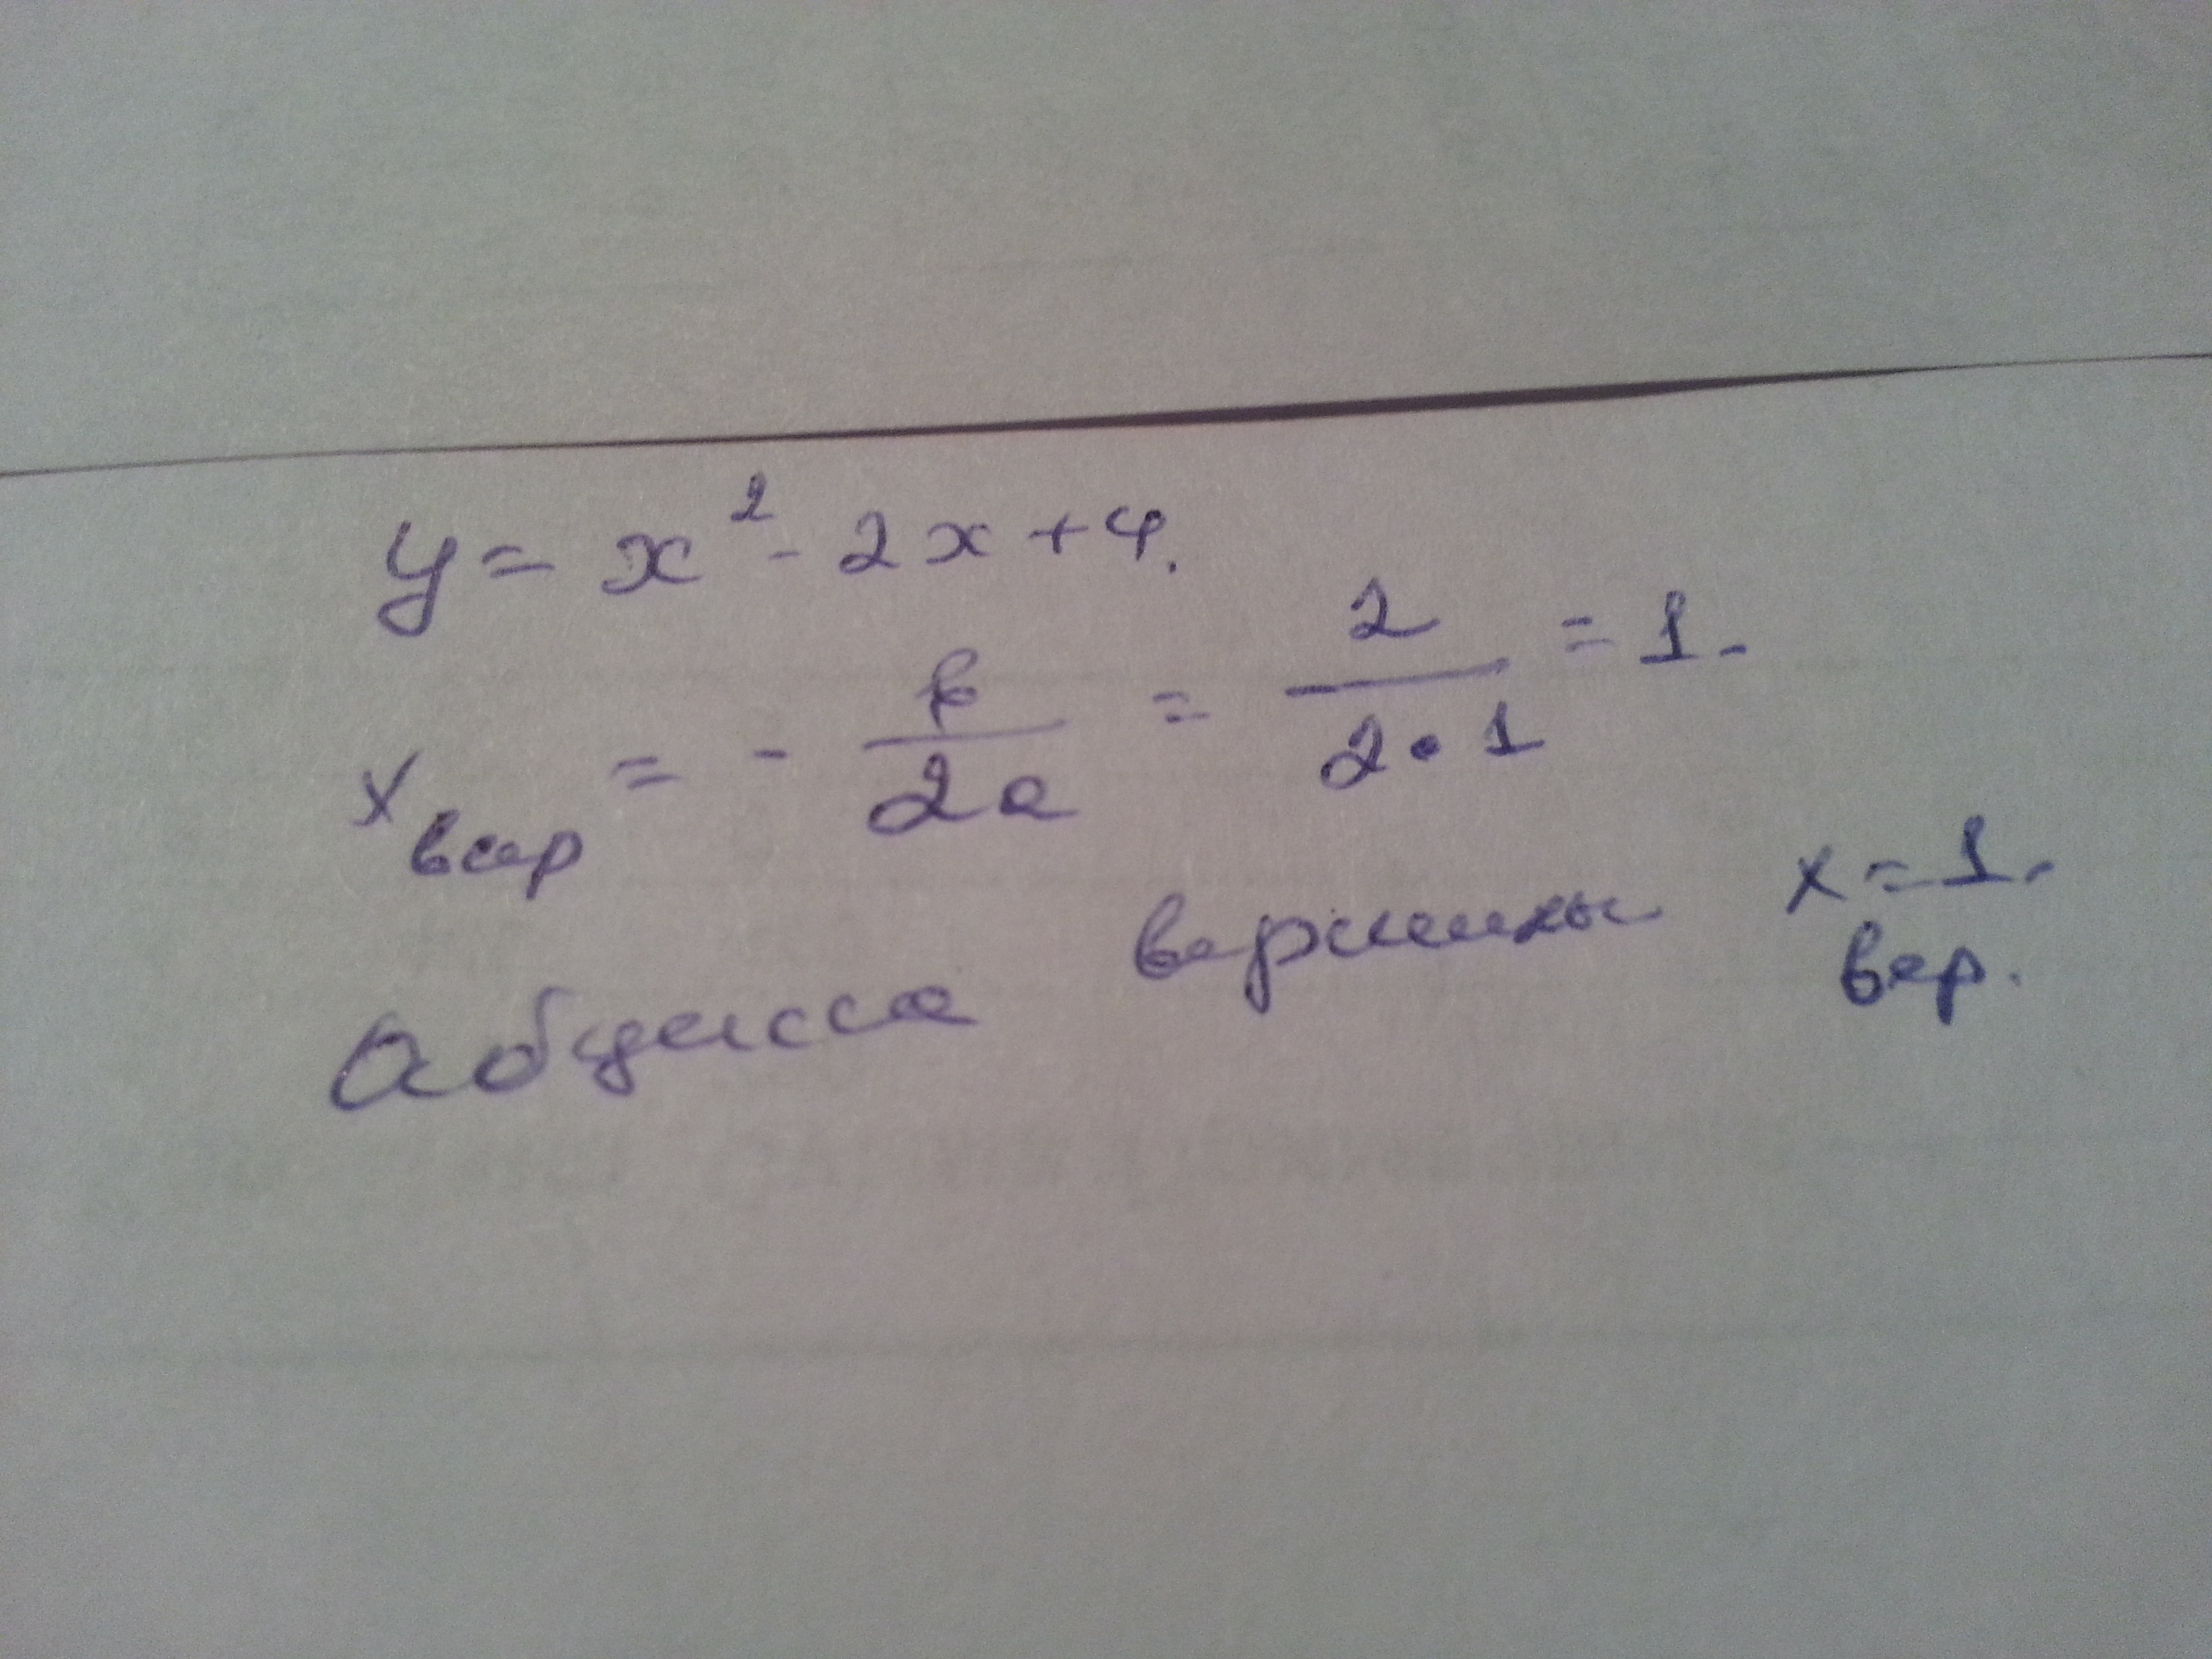 y = x² - 2x + 4.
x вер = - в/2а = 2/2•1 = 1.
Абцисса вершины x вер. = 1.